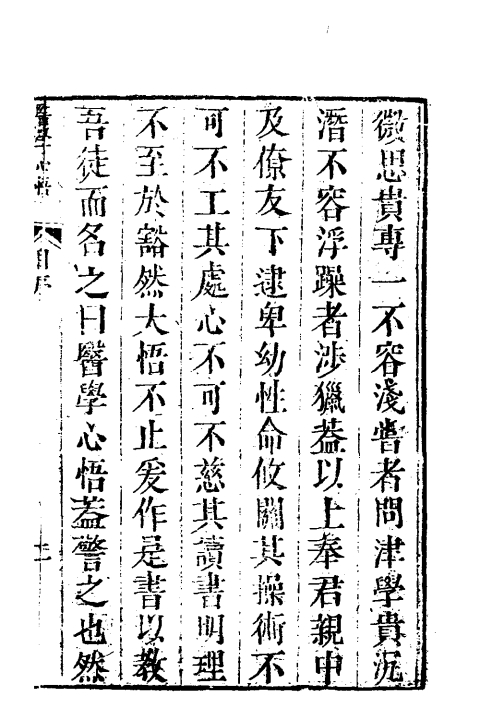 微思貴專一不容淺嘗者問津學貴沉
潛不容浮躁者涉獵葢以上奉君親中
及僚友下逮卑幼性命攸關其操術不
可不工其處心不可不慈其讀書明理
不至於豁然大悟不止爰作是書以教
吾徒而名之曰醫學心悟葢警之也然
醫學心悟
自序